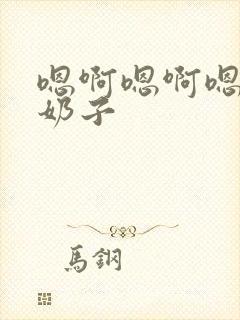 嗯啊嗯啊嗯
奶子
馬鋼